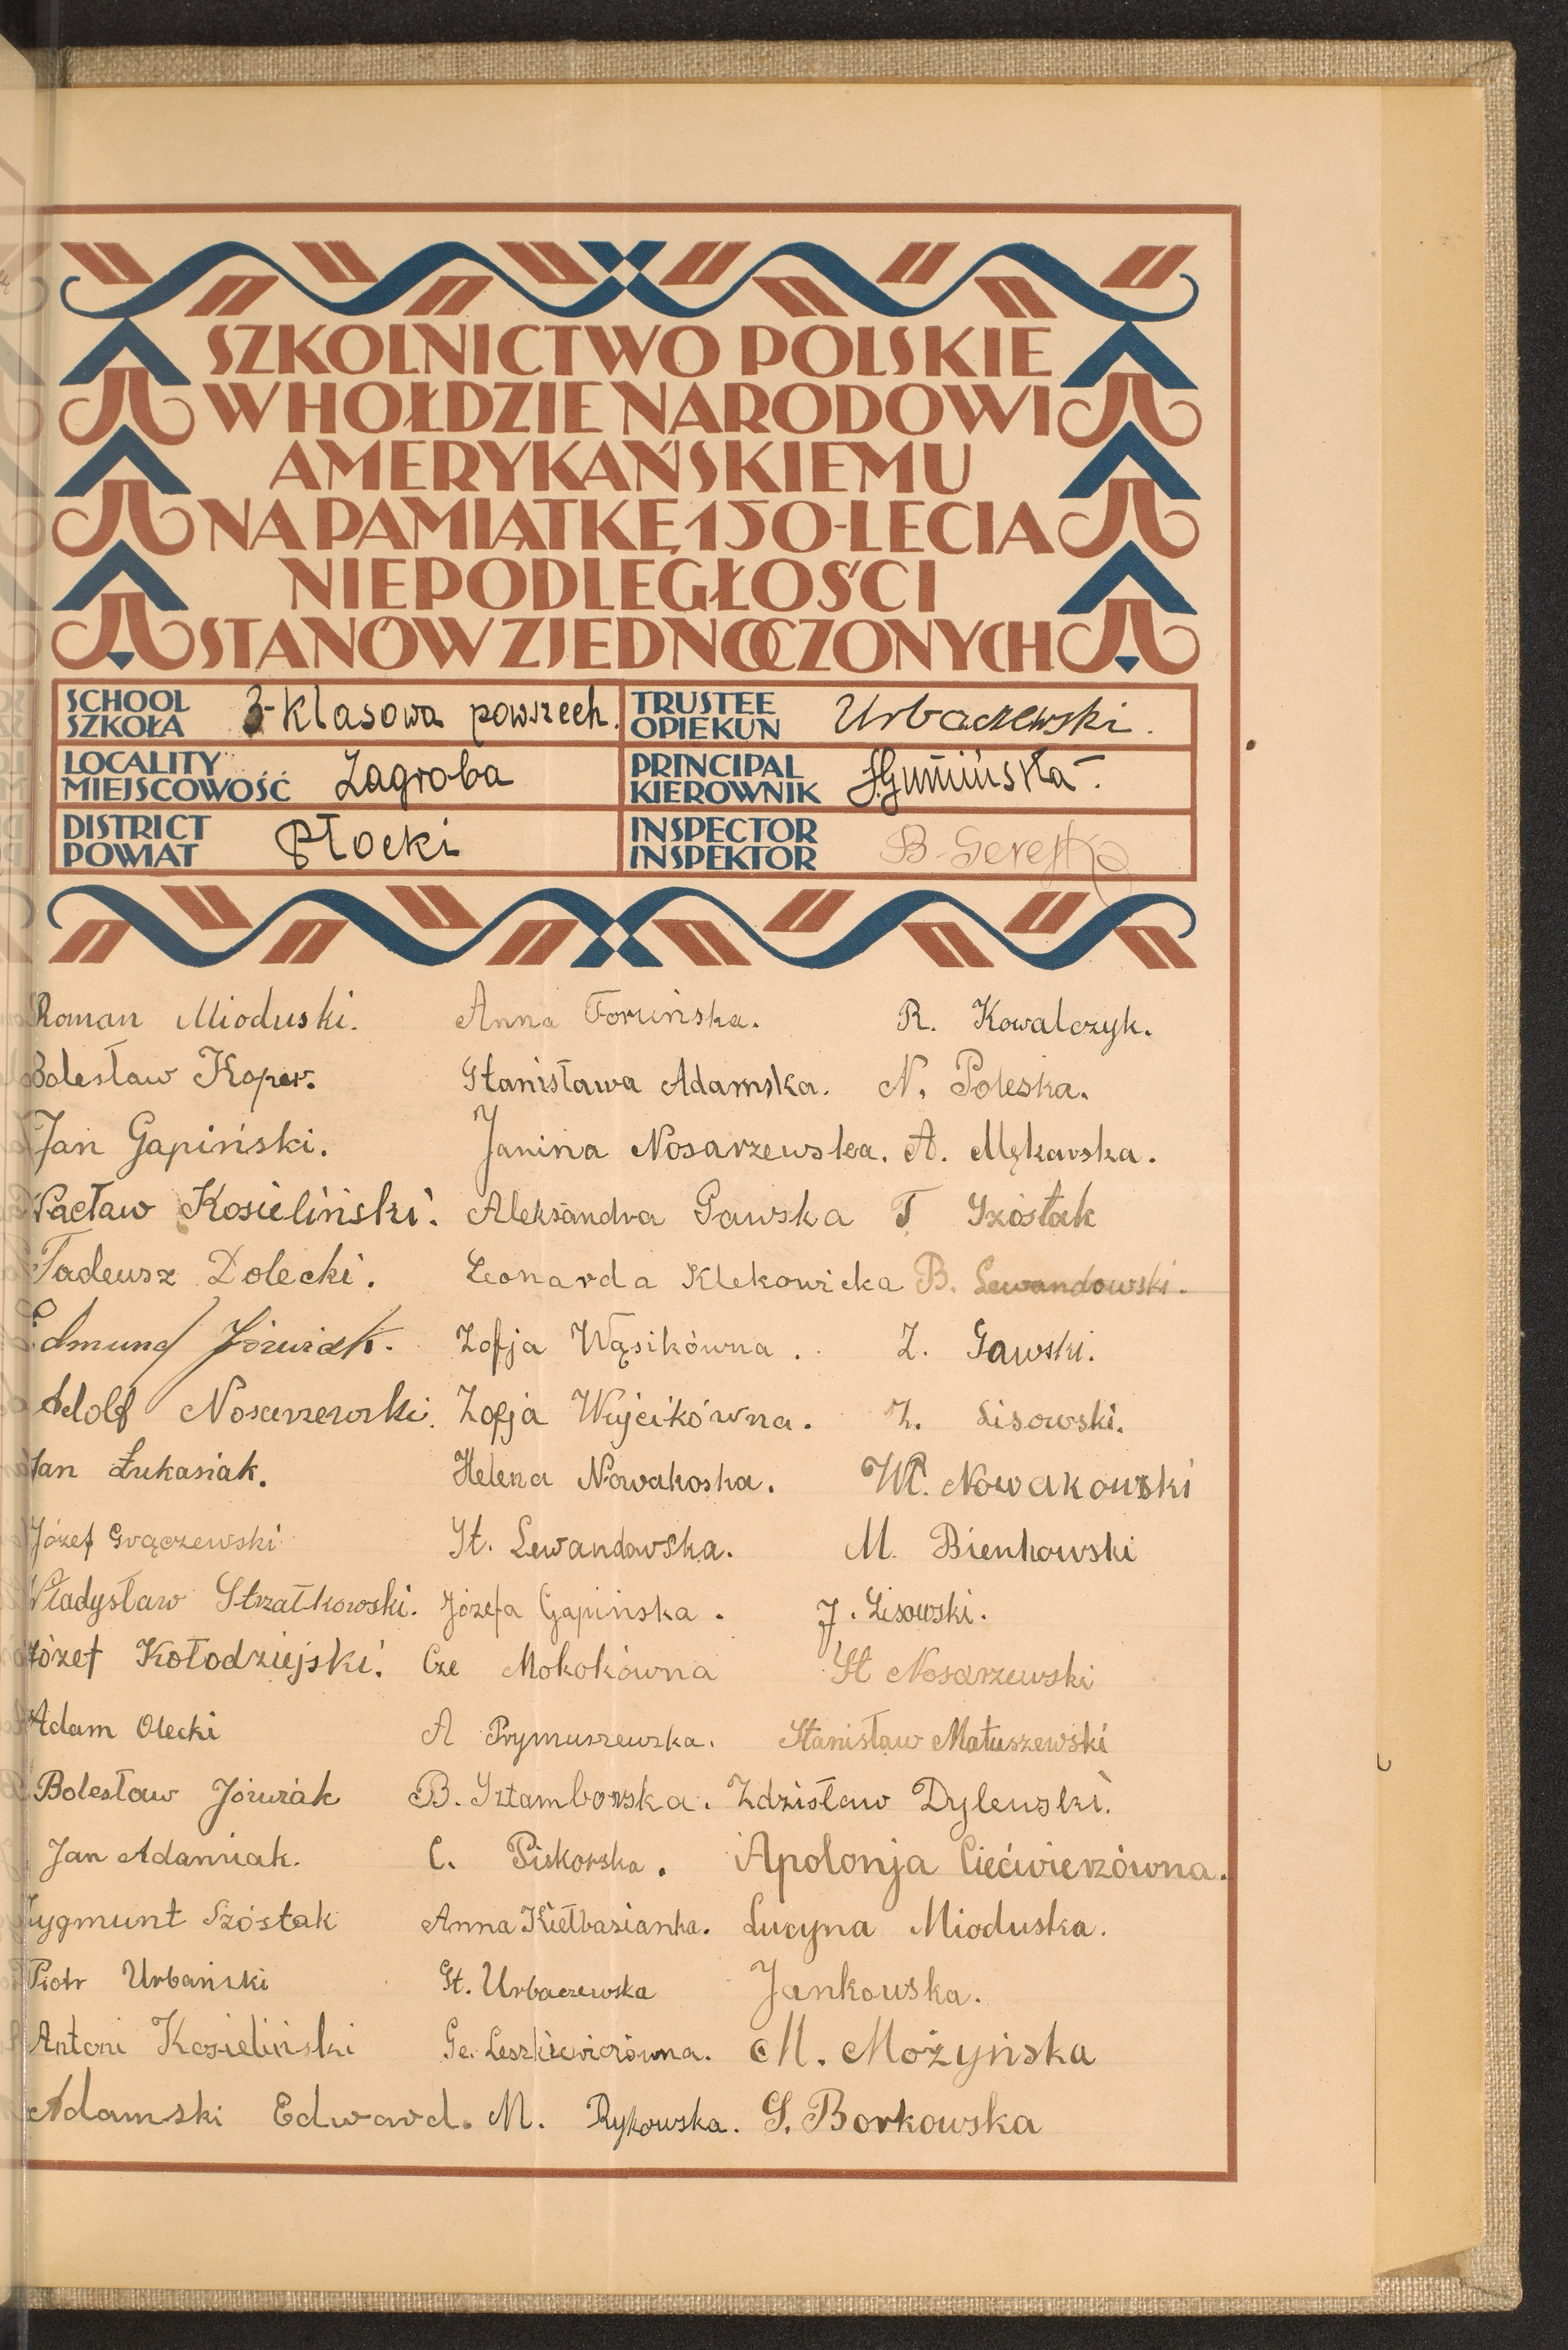 SZKOLNICTWO POLSKIE
W HOŁDZIE NARODOWI
AMERYKAŃSKIEMU
NA PAMIĄTKĘ 150-LECIA
NIEPODLEGŁOŚCI
STANÓW ZJEDNOCZONYCH
SCHOOL SZKOŁA 3-klasowa powszech. TRUSTEE OPIEKUN Urbaczewski.
LOCALITY MIEJSCOWOŚĆ Zagroba PRINCIPAL KIEROWNIK Gumińska
DISTRICT POWIAT Płocki INSPECTOR INSPEKTOR B. Gerejko
Roman Mioduski. Anna Toruńska. R. Kowalczyk.
Bolesław Koper. Stanisława Adamska. N. Poleska.
Jan Gapiński. Janina Nosarzewska. A. Mękarska.
Wacław Kosieliński. Aleksandra Gawska T Szóstak
Tadeusz Dolecki. Leonarda Klekowicka B. Lewandowski.
Edmund Józwiak. Zofja Wąsikówna. Z. Gawski.
Adolf Nosarzewski. Zofja Wujcikówna. Z. Lisowski.
Jan Łukasiak. Helena Nowakoska. Wł. Nowakowski
Józef Grączewski St. Lewandowska. M. Bienkowski
Władysław Strzałkowski. Józefa Gapinska. J. Lisowski.
Józef Kołodziejski. Cze Mokokówna St Nosarzewski
Adam Olecki A Prymuszewska. Stanisław Matuszewski
Bolesław Józwiak B. Sztamborska. Zdzisław Dylewski.
Jan Adamiak. C. Piskorska. Apolonja Ciećwierzówna.
Zygmunt Szóstak Anna Kiełbasianka. Lucyna Mioduska.
Piotr Urbański St. Urbaczewska Jankowska.
Antoni Kosieliński Ge. Leszkiewiczówna. M. Możyńska
Adamski Edward. M. Rykowska. S. Borkowska